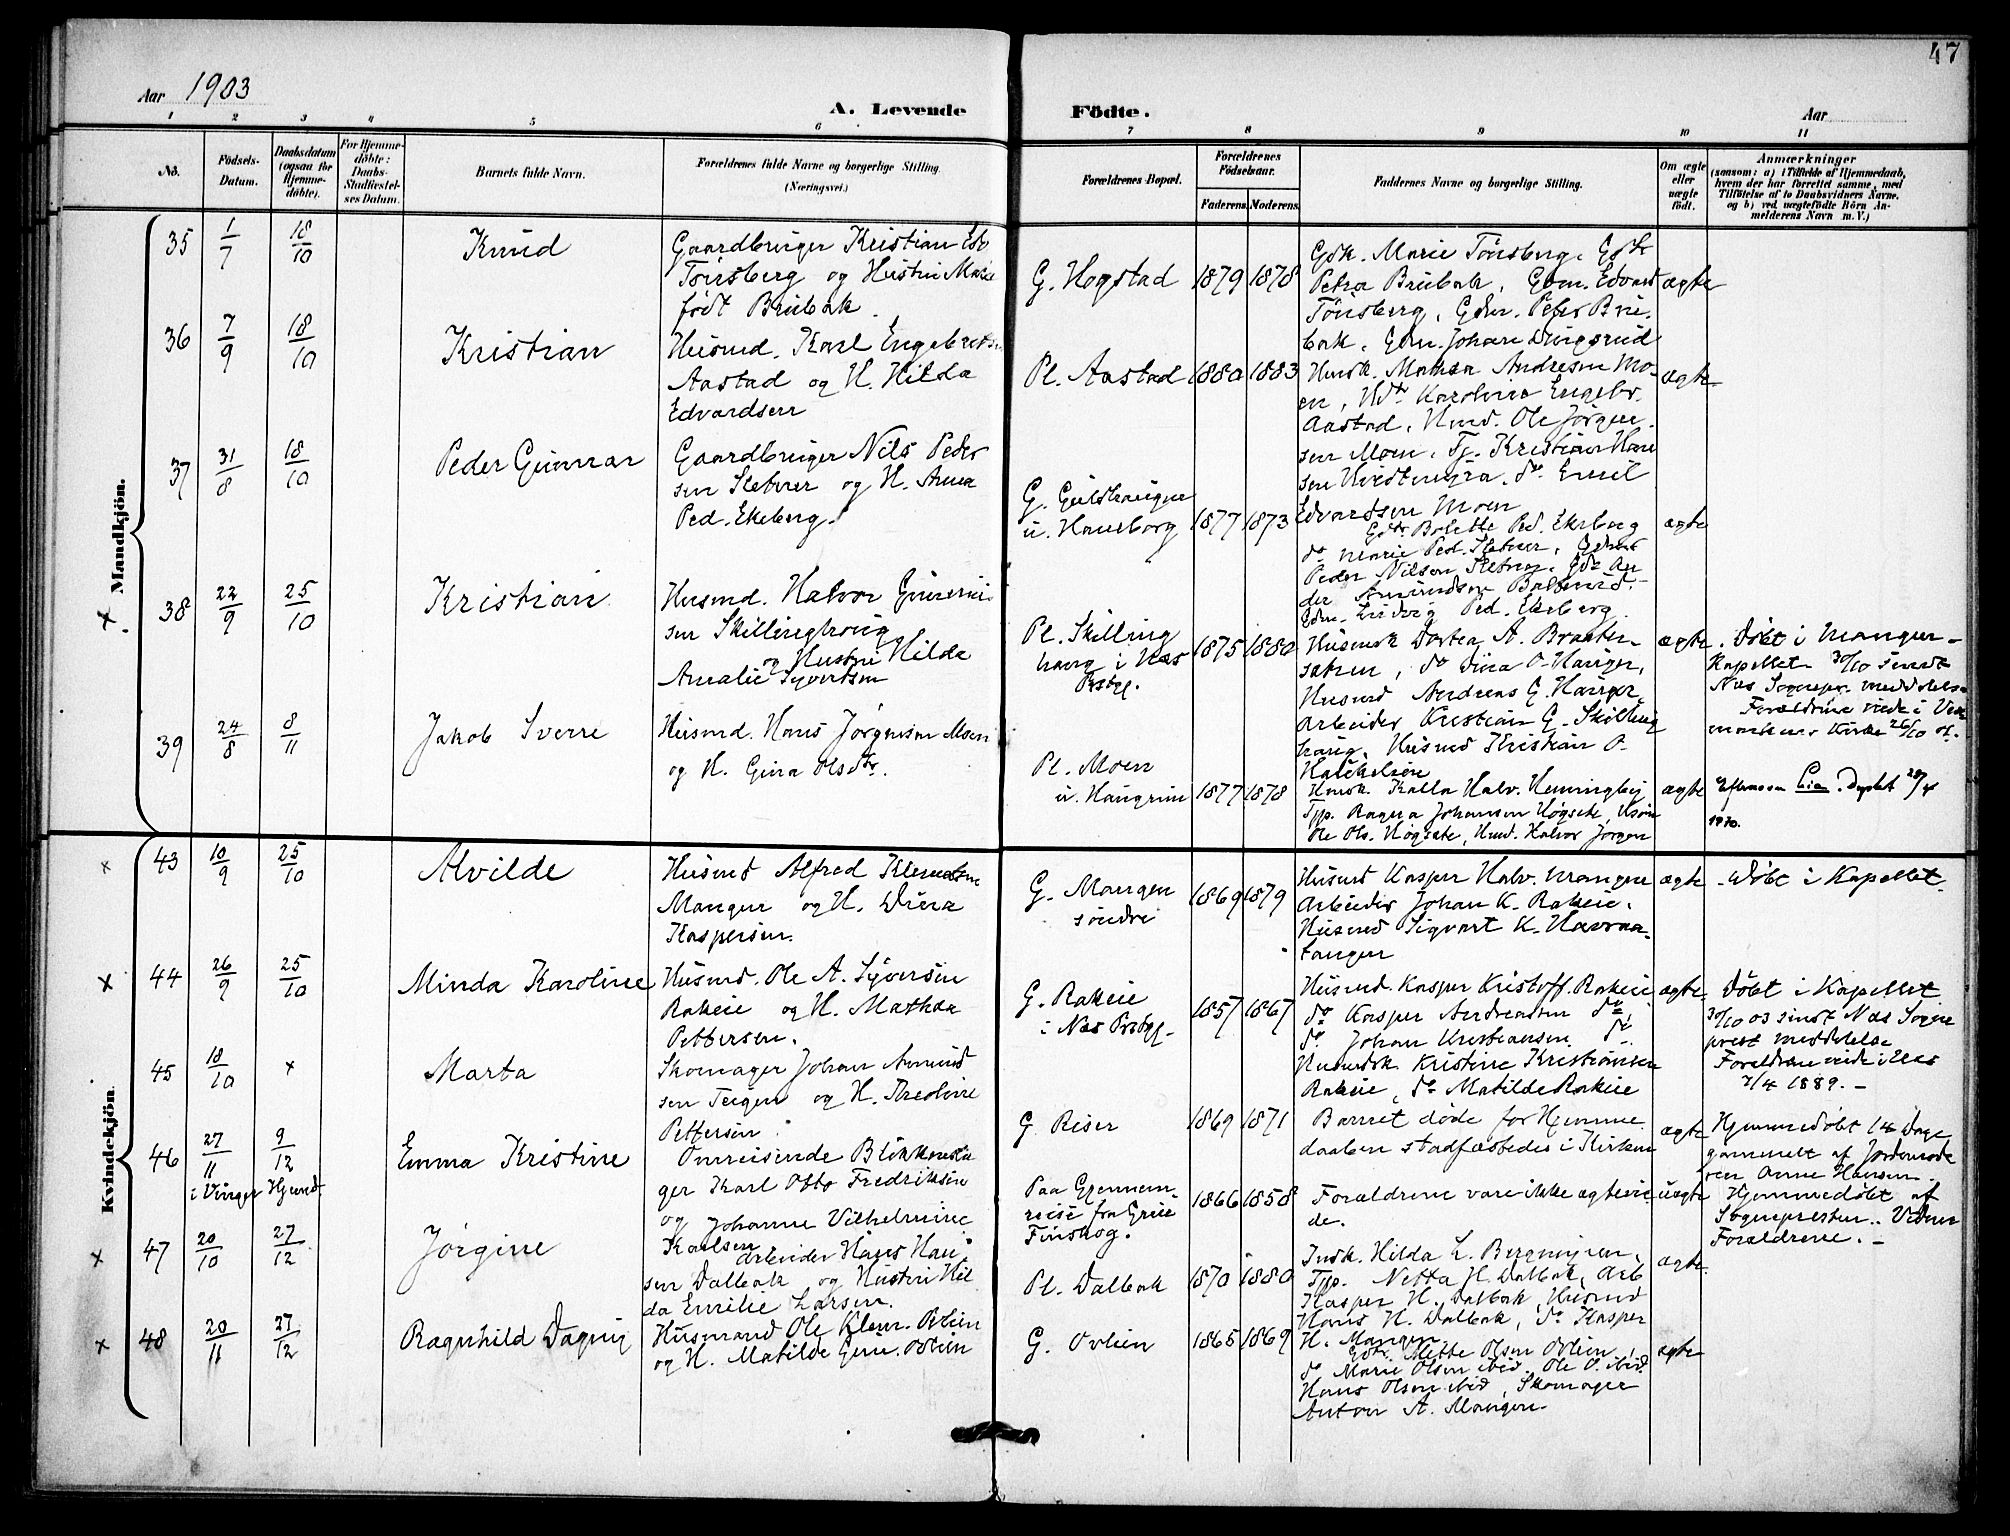 47
Aar 1903
A. Levende
Födte.
Aar
1 2 3 4 5 6 7 8 9 10 11
No.
Födsels-
Datum.
Daabsdatum
(ogsaa for
Hjemme-
döbte).
For Hjemme-
döbte:
Daabs-
Stadfæstel-
ses Datum.
Barnets fulde Navn.
Forældrenes fulde Navne og borgerlige Stilling.
(Næringsvei.)
Forældrenes Bopæl.
Forældrenes
Födselsaar.
Faderens.
Moderens.
Faddernes Navne og borgerlige Stilling.
Om ægte
eller
uægte
födt.
Anmærkninger
(saasom: a) i Tilfælde af Hjemmedaab,
hvem der har forrettet samme, med
Tilföielse af to Daabsvidners Navne,
og b) ved uægtefödte Börn An-
melderens Navn m. V.)
Mandkjön.
35 1/7 18/10 Knud
Gaardbruger Kristian Edv
Tönsberg og Hustru Marie
født Brubak.
G. Hogstad 1879 1878
Gdk. Marie Tönsberg, Gdtr
Petra Brubak, Gdm. Edvard
Tönsberg, Gdm. Peter Bru-
bak, Gdm. Johan Dingsrud
ægte
36 7/9 18/10 Kristian
Husmd. Karl Engebretsen
Aastad og H. Hilda
Edvardsen
Pl. Aastad 1880 1883
Husk. Mathea Andresen Mo-
en, Hdtr Karoline Engebr.
Aastad, Hmd. Ole Jörgen
sen Moen, Tj. Kristian Han
sen, do Emil
Edvardsen Moen
ægte
37 31/8 18/10 Peder Gunnar
Gaardbruger Nils Peder
sen Sletner og H. Anna
Ped. Ekeberg.
G. Gulshaugen
u. Haneborg 1877 1873
Gdtr. Bolette Ped. Ekeberg
do Marie Ped. Sletner,
Peder Nilsen Sletner, An
der Amundsen
Gdm. Ludvig Ped. Ekeberg
ægte
x 38 22/9 25/10 Kristian
Husmd. Halvor Gunerius
sen Skillinghaug
og Hustru Hilda
Amalie Syvertsen
Pl. Skilling
haug i Næs
Prstgj. 1875 1880
Husmsk Dortea A. Braaten
sæteren, do Dina O. Hauger,
Husmd Andreas G. Hauger
Arbeider Kristian G. Skilling
haug, Husmd Kristian O.
ægte
Døbt i Mangen-
Kapellet 30/10 sendt
Næs Sognepr. meddelelse
Forældrene viede i Ves
markens Kirke 26/10 01.
39 24/8 8/11 Jakob Sverre
Husmd. Hans Jørgensen Moen
og H. Gina Olsdtr.
Pl. Moen
u. Haugrim 1877 1878
Hmsk. Kalla Halv. Henningby
Tjp. Ragna Johansen Høgsete,
Ole Ols. Høgsete, Hmd. Halvor Jørgen
ægte
Efternavn Lien. Dyptet 28/4
1970.
Kvindekjön.
x 43 10/9 25/10 Alvilde
Husmd Alfred Klemetsen
Mangen og H. Dina
Kaspersen.
G. Mangen
søndre 1869 1879
Husmd Kasper Halv. Mangen
Arbeider Johan K. Rakeie.
Husmd Sigvart K. Havraa-
tangen
ægte
Døbt i Kapellet.
x 44 26/9 25/10 Minda Karoline
Husmd. Ole A. Syversen
Rakeie og H. Mathea
Pettersen.
G. Rakeie
i Næs Prstgj. 1857 1867
Husmd. Kasper Kristoff. Rakeie
do Kasper Andreassen do
do Johan Kristiansen do
Husmdsk Kristine Kristiansen
Rakeie, do Matilde Rakeie
ægte
Døbt i Kapellet
30/10 03 sendt Næs Sogne
prest meddelelse
Forældrene viede i Næs
7/4 1889.-
45 18/10 x Marta
Skomager Johan Amund
sen Teigen og H. Theoline
Pettersen.
G. Riser 1869 1871
Barnet døde før Hjemme
daaben stadfæstedes i Kirken
ægte
Hjemmedøbt 14 Dage
gammelt af Jordemode
ren Anne Hansen.-
46 27/11 9/12 Emma Kristine
i Vinger Hjemd.
Omreisende Blikkensla
ger Karl Otto Fredriksen
og Johanne Vilhelmine
Karlsen
Paa Gjennem
reise fra Grue
Finskog. 1866 1858
Forældrene vare ikke ægtevie
de.
uægte
Hjemmedøbt af
Sognepresten. Vidner
Forældrene.-
x 47 20/10 27/12 Jørgine
Arbeider Hans Han
sen Dalbak og Hustru Hil
da Emilie Larsen.
Pl. Dalbak 1870 1880
Indk. Hilda L. Bergmyren,
Tjp. Netta H. Dalbak, Arb
Kasper H. Dalbak, Husmd
Hans H. Dalbak, do Kasper
H. Mangen
ægte.
x 48 20/11 27/12 Ragnhild Dagny
Husmand Ole Klem. Ovlien
og H. Matilde Gun. Ovlien
G. Ovlien 1865 1869
Gdtr. Mette Olsen Ovlien,
do Marie Olsen ibid. Ole O. ibid.
Hans Olsen ibid, Skomager
Anton A. Mangen.
ægte